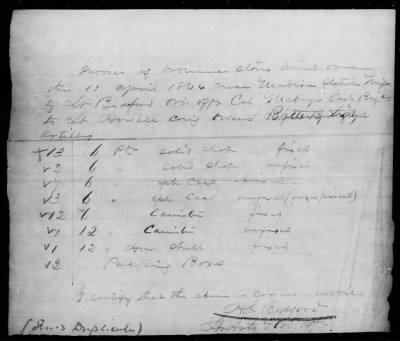 Invoice of ordnance stores turned over
this 11 April 1864 near Madison Station Miss
by Lt Bedford Ord. offr Col Mabrys Cavy Brig
to Lt Howell comg Owens Battery Light
Artillery
13 6 Pdr solid shot fixed
2 6 " solid shot unfixed
6 " sph Case fixed
3 6 " sph Case unfixed
12 6 Canister fixed
1 12 " Canister unfixed
1 12 " Shell fixed
2 Packing Boxes
I certify that the above is correct invoice
H L Bedford
(Given in Duplicate)